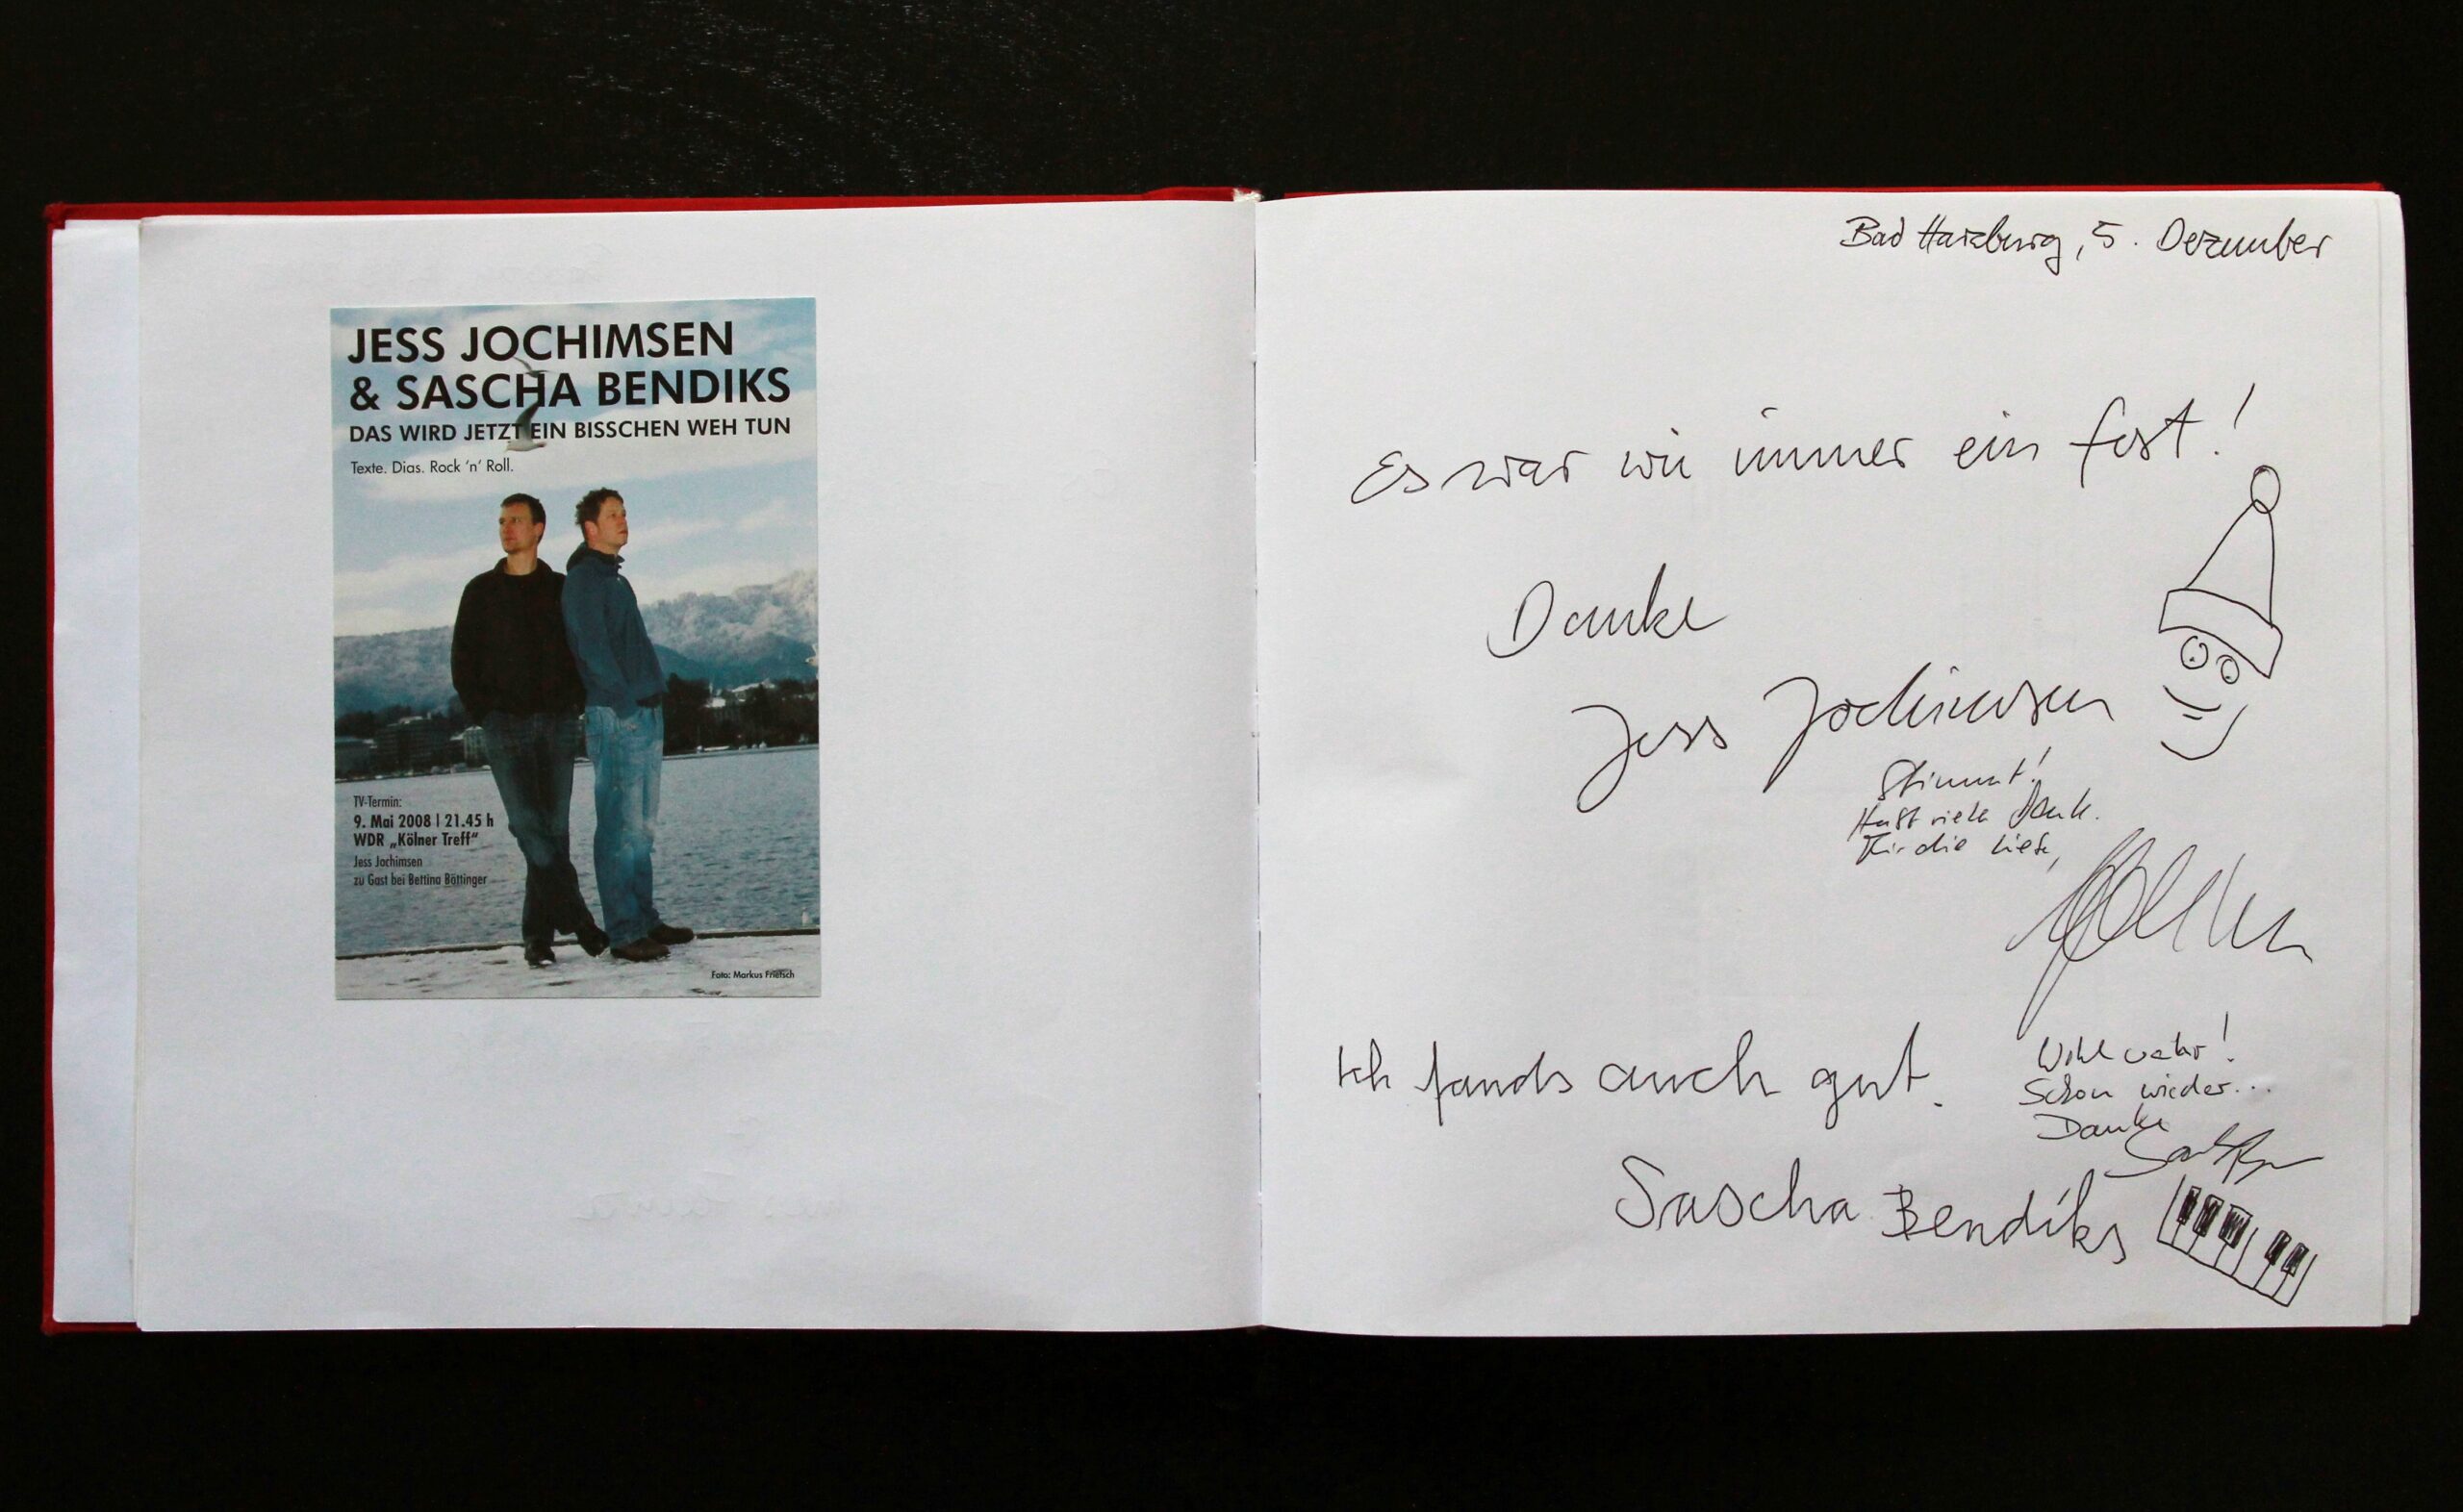 JESS JOCHIMSEN
& SASCHA BENDIKS
DAS WIRD JETZT EIN BISSCHEN WEH TUN
Texte. Dias. Rock 'n' Roll.
TV-Termin:
9. Mai 2008 | 21.45 h
WDR „Kölner Treff“
Jess Jochimsen
zu Gast bei Bettina Böttinger
Foto: Markus Frietsch
Bad Harzburg, 5. Dezember
Es war wie immer ein fest!
Danke
Jess Jochimsen
Stimmt!
Habt viele Dank.
Für die Liebe,
Ich fands auch gut.
Wohl wahr!
Schon wieder...
Danke
Sascha Bendiks